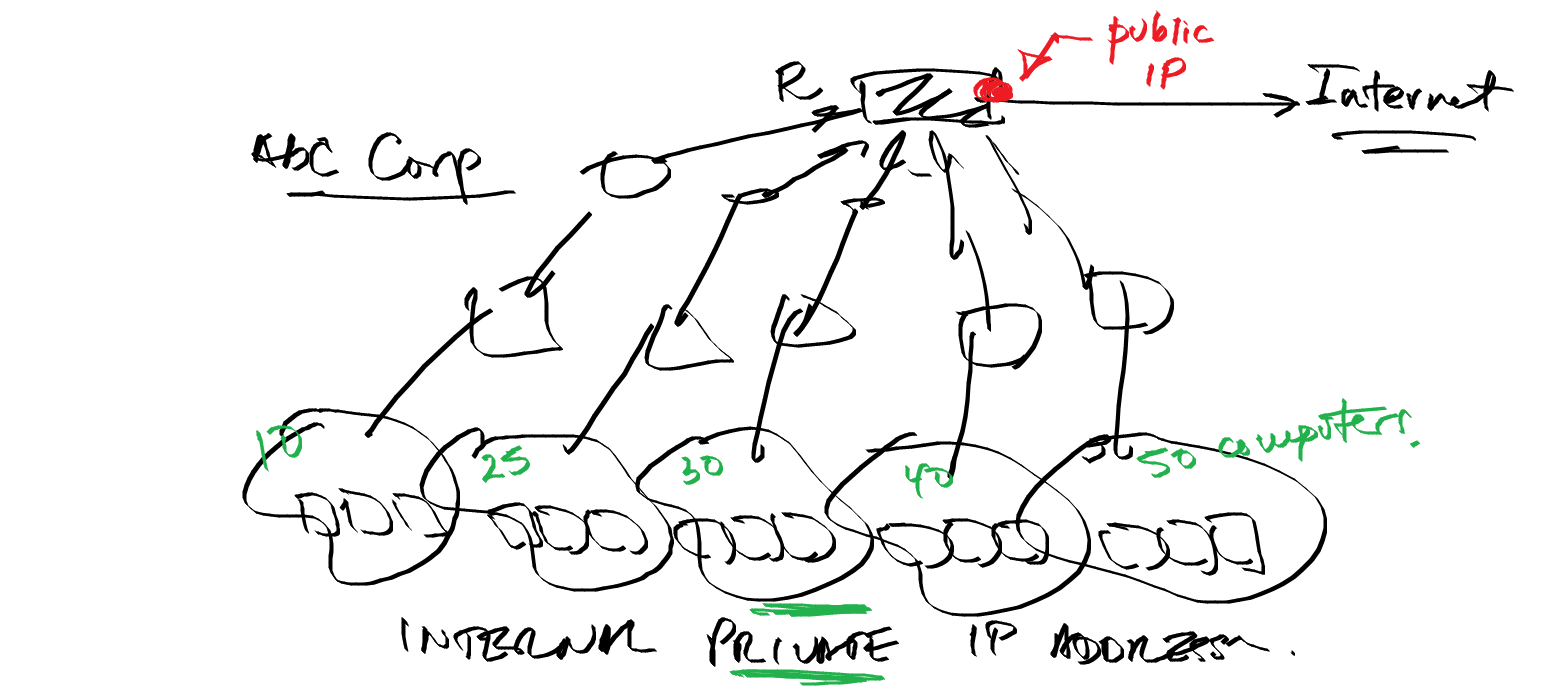 public
IP
R
Internet
ABC Corp
10
25
30
40
50 computers.
INTERNAL PRIVATE IP ADDRESS.